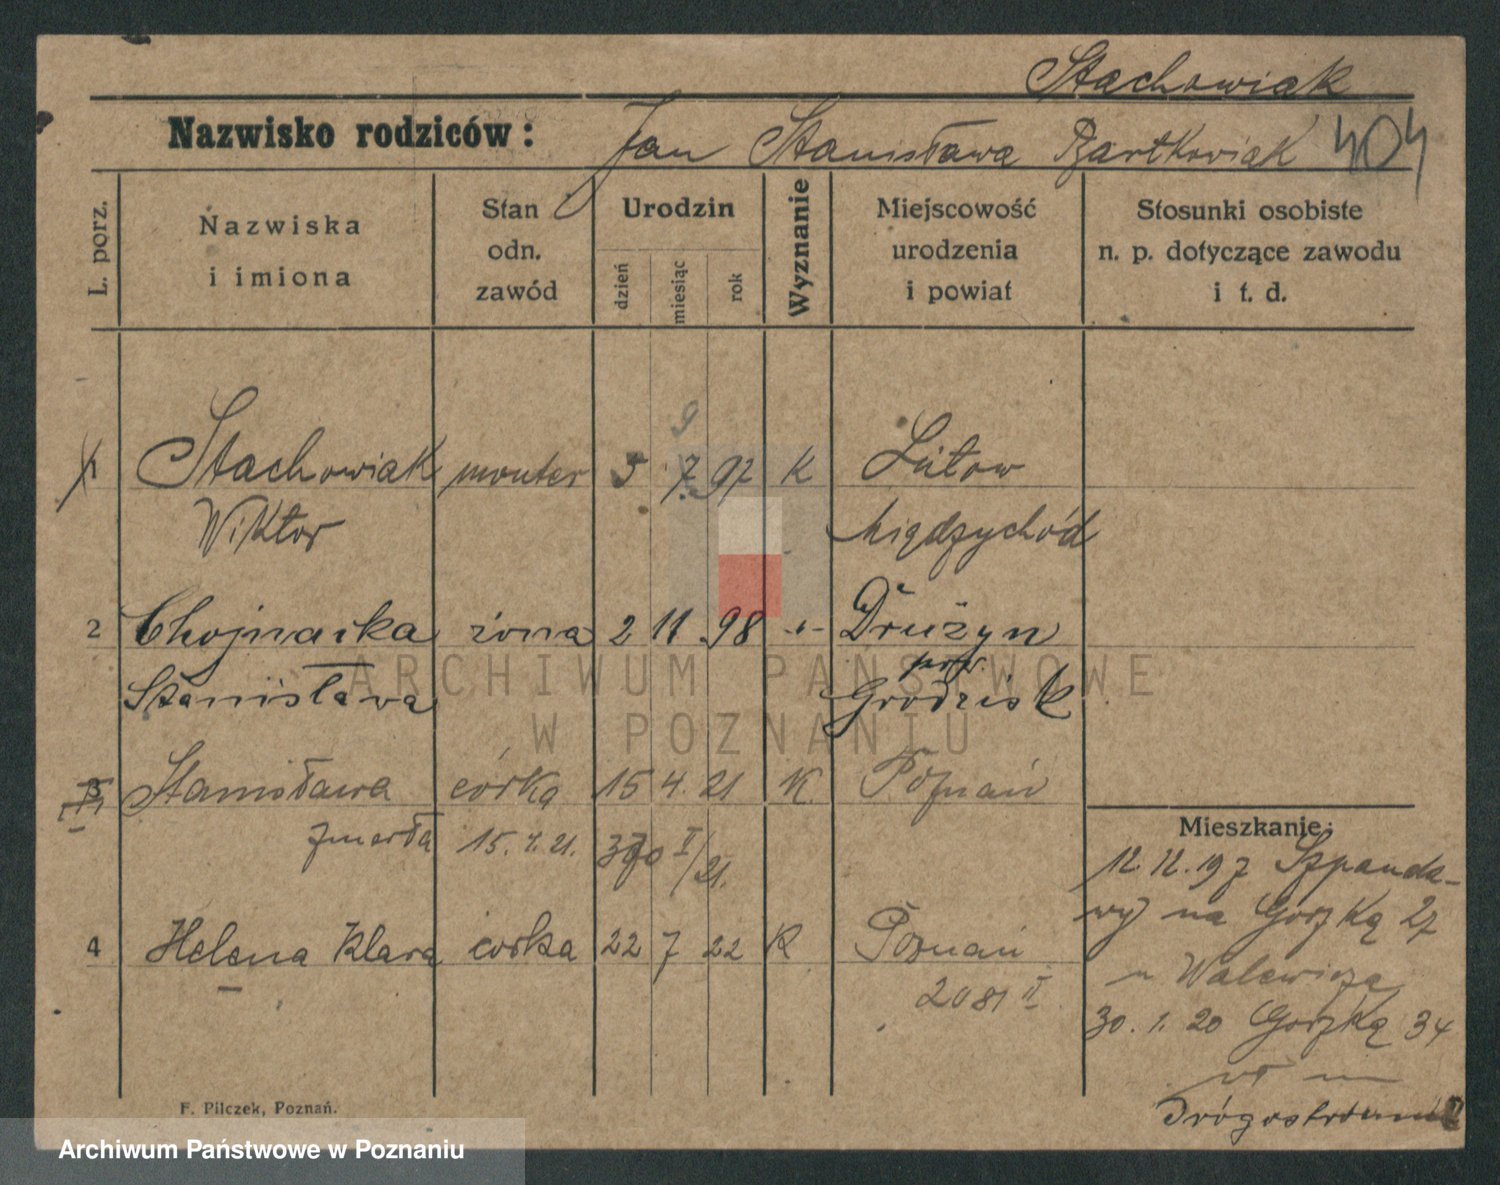 Stachowiak
Nazwisko rodziców: Jan Stanisława Bartkowiak 404
L. porz.
Nazwiska i imiona
Stan odn. zawód
Urodzin
dzień miesiąc rok
Wyznanie
Miejscowość urodzenia i powiat
Stosunki osobiste n. p. dotyczące zawodu i t. d.
9
1 Stachowiak monter 5 7 97 K Lutow
Wiktor Międzychód
2 Chojnacka żona 2 11 98 -"- Drużyn
pow.
Stanisława Grodzisk
3 Stanisława córka 15 4. 21 K. Poznań
zmarła 15. 4. 21. 370 II/21.
4 Helena Klara córka 22 7 22 K Poznań
2081 II
Mieszkanie:
12.12.197 Szpanda-
wy na Gorzką 27
u Walewicza
30. 1. 20 Gorzką 34
F. Pilczek, Poznań.
ARCHIWUM PAŃSTWOWE
W POZNANIU
Archiwum Państwowe w Poznaniu